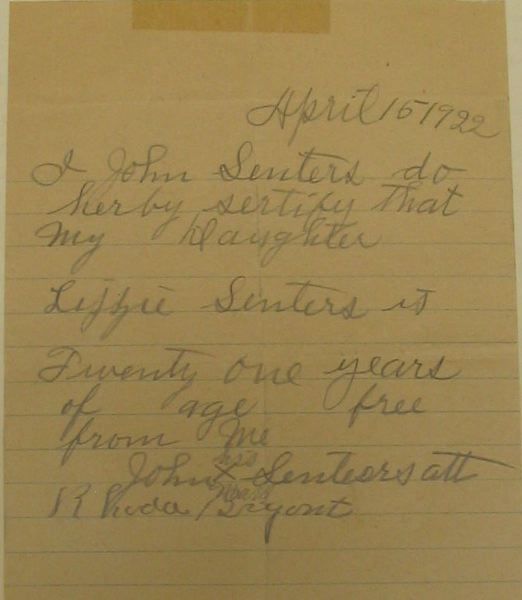 April 15 1922
I John Senters do
herby sertify that
my Daughter
Lizzie Senters is
Twenty one years
of age free
from me
his
John X Senteors att
mark
Rhoda Bryant